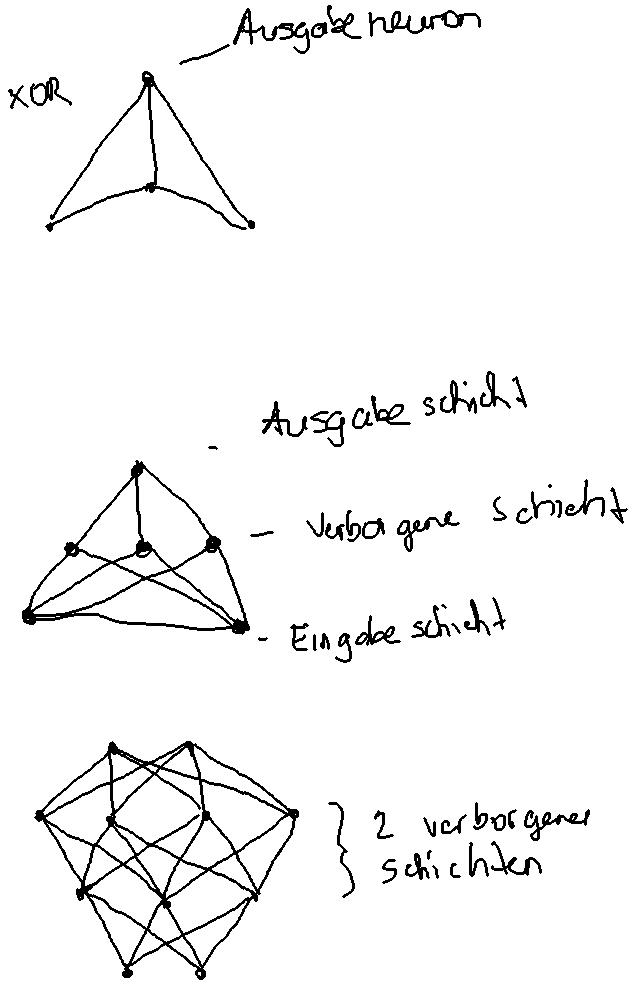 Ausgabeneuron
XOR
Ausgabeschicht
Verborgene Schicht
Eingabeschicht
2 verborgener
schichten